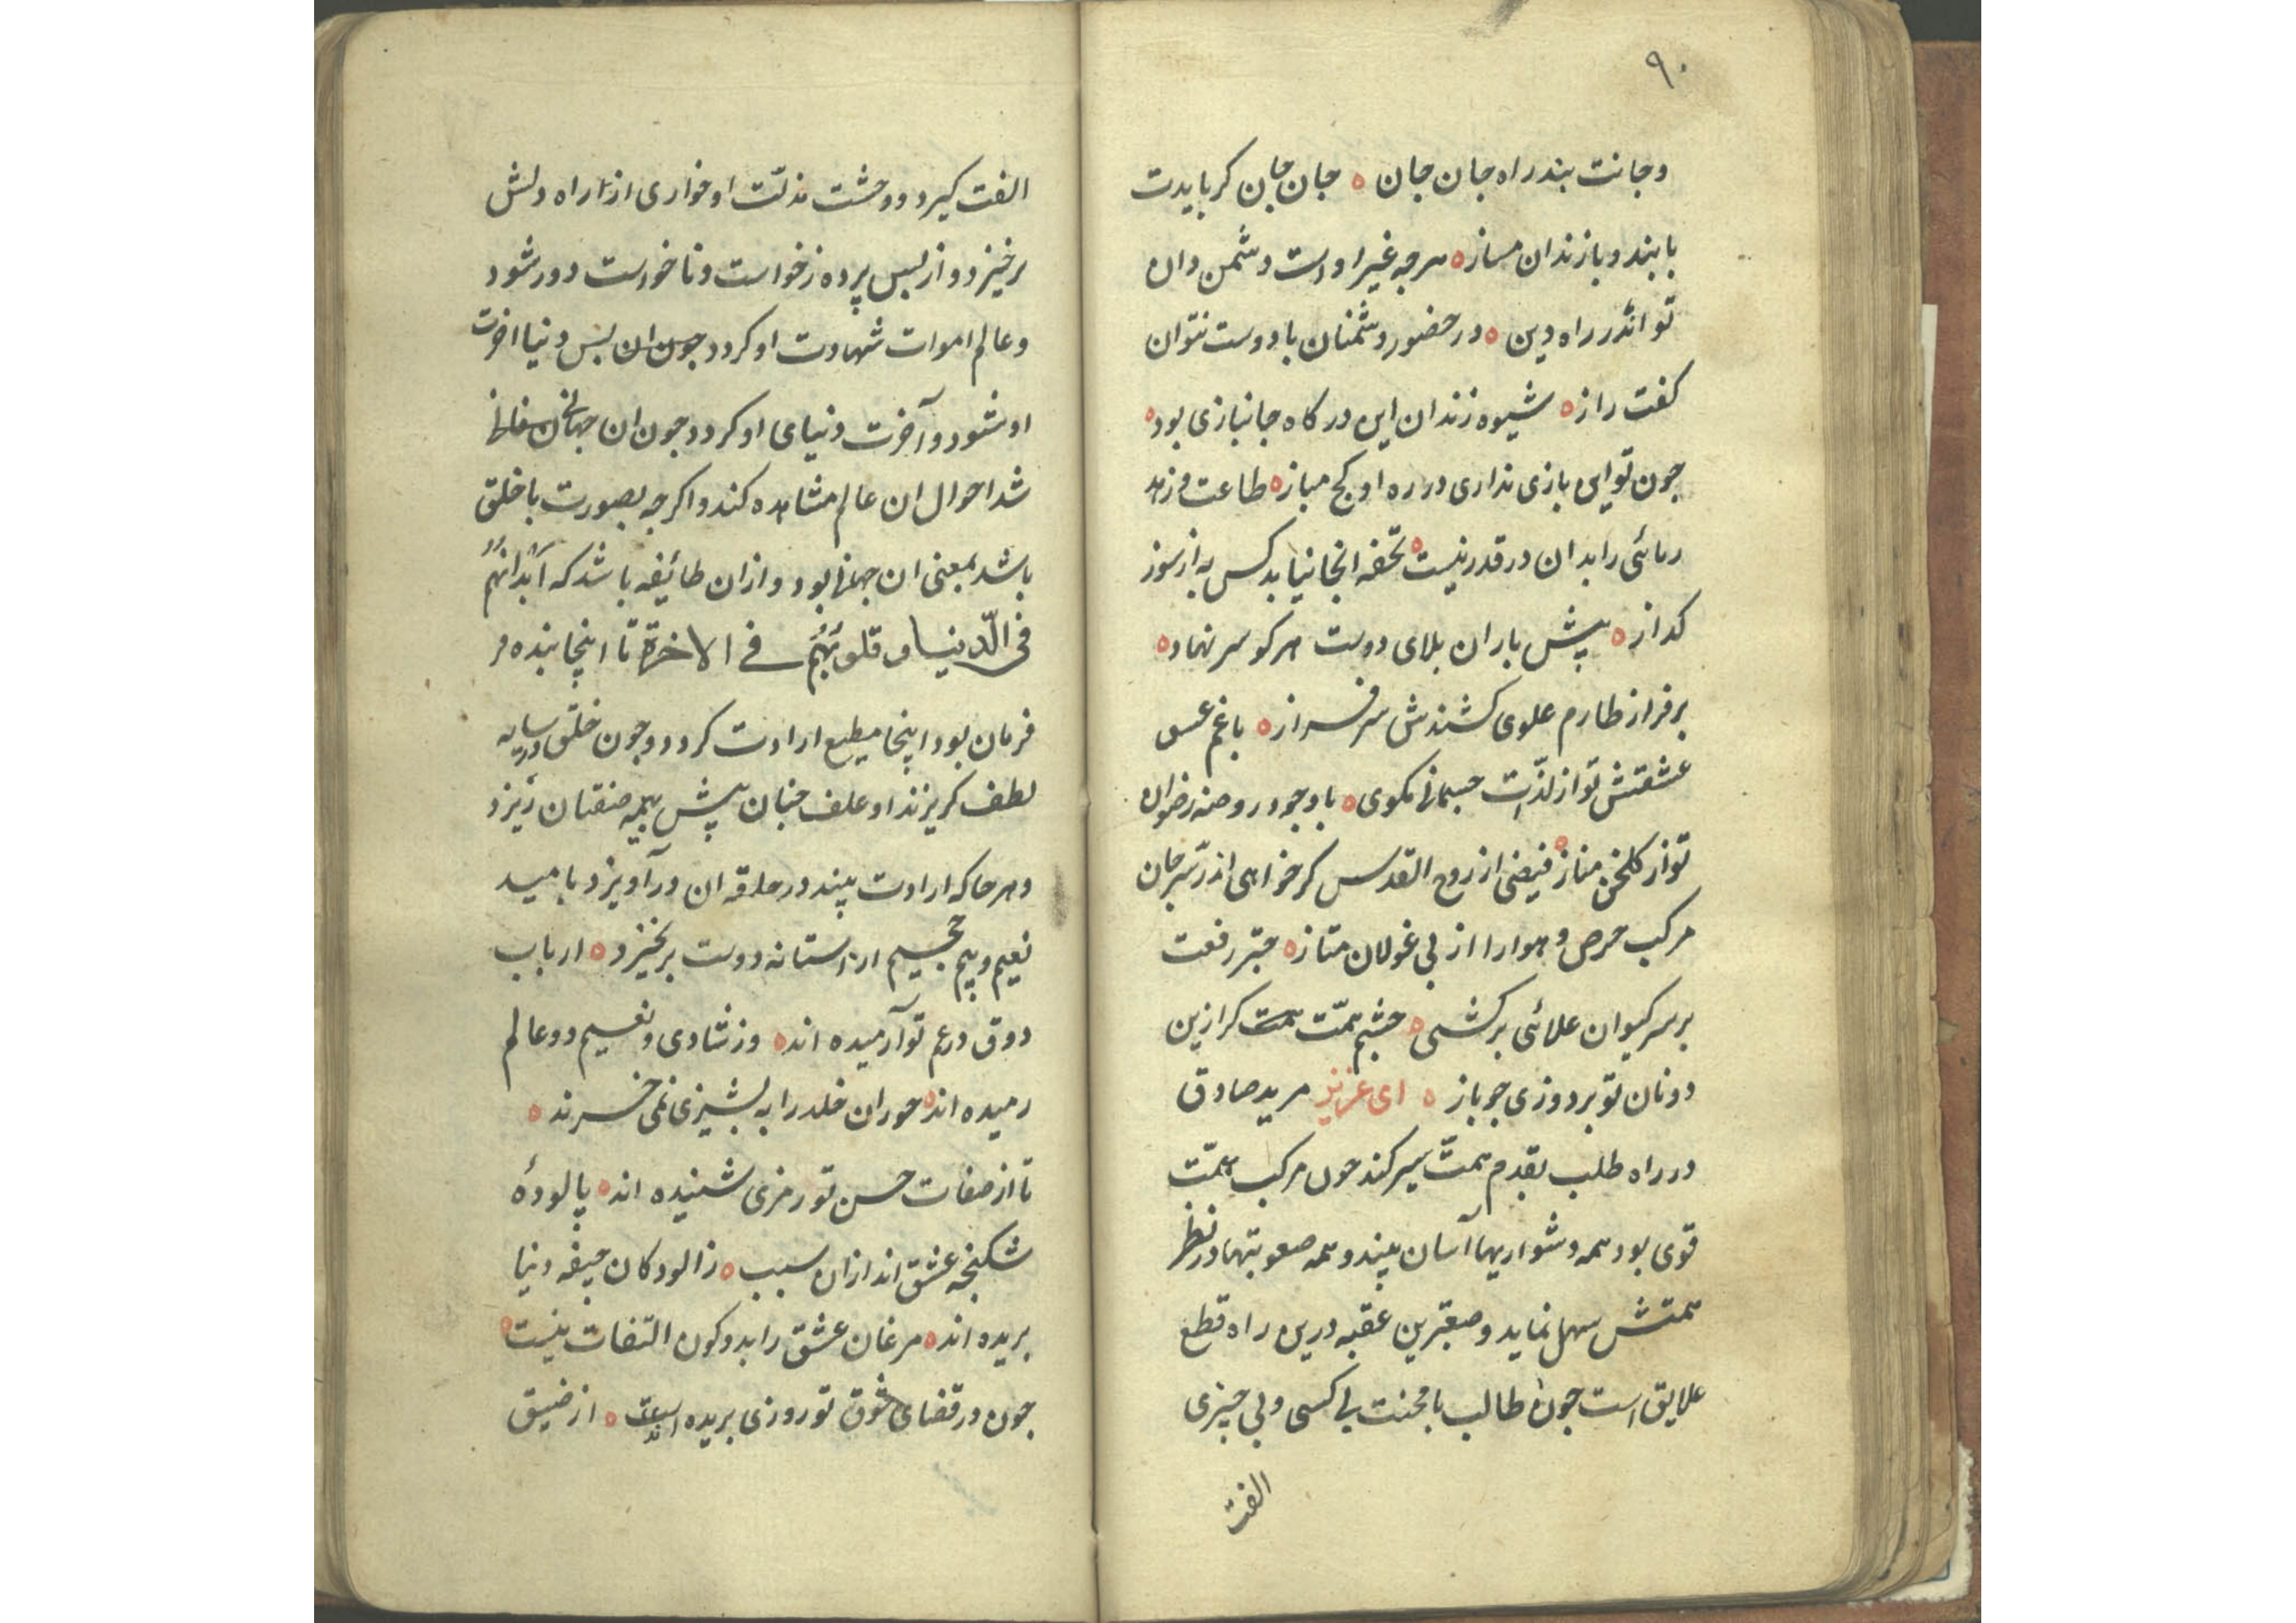 ۹۰
وجانت بند راه جان جان ٥ جان جان کر بایدت
با بند و با زندان مساز ٥ هرجه غیر اوست دشمن دان
تو اندر راه دین ٥ در حضور دشمنان با دوست نتوان
کفت راز ٥ شیوه زندان این درکاه جانبازی بود ٥
جون تو این بازی نداری در ره او کج مباز ٥ طاعت و زهد
ریائی را بدان در قدر نیست ٥ تحفه انجا نیابد کس به از سوز
کداز ٥ پیش باران بلای دوست هر کو سر نهاد ٥
بر فراز طارم علوی کشندش سرفراز ٥ با غم عسق
عشقتش تو از لذت جسمانی مکوی ٥ با وجود روضه رضوان
تو از کلخن مناز ٥ فیضی از روح القدس کر خواهی اندر سر جان
مرکب حرص و هوا را از پی غولان متاز ٥ جتر رفعت
بر سر کیوان علائی برکشی ٥ جشم همت کر ازین
دونان تو بر دوزی جو باز ٥ ای عزیز مرید صادق
در راه طلب بقدم همت سیر کند جون مرکب همت
قوی بود همه دشواریها آسان بیند و همه صعوبتها در نظر
همتش سهل نماید و صعبترین عقبه درین راه قطع
علایق است جون طالب با محنت بی کسی و بی جیزی
الفت
الفت کیرد و وحشت مذلت او خواری از راه دلش
برخیزد و از پس پرده زخواست و ناخواست دور شود
و عالم اموات شهادت او کردد جون ان بس دنیا اخرت
او شود و آخرت دنیای او کردد جون ان جهانی
شد احوال ان عالم مشاهده کند و اکرجه بصورت با خلق
باشد بمعنی ان جهانی بود و ازان طائفه باشد که اَبْدانُهُم
فی الدّنیا و قلوبُهُم فے الاخرة تا اینجا بنده
فرمان بود اینجا مطیع ارادت کردد و جون خلق در سایه
لطف کریزند او علف جنان پیش بهیمه صفتان ریزد
و هر جا که ارادت بیند در حلقه ان درآویزد بامید
نعیم و بیم جحیم از استانه دوست برنخیزد ٥ ارباب
ذوق در غم تو آرمیده اند ٥ وز شادی و نعیم دو عالم
رمیده اند ٥ حوران خلد را به پشیزی نمی خرند ٥
تا از صفات حسن تو رمزی شنیده اند ٥ پالودهٔ
شکنجه عشق اند ازان سبب ٥ ز الودکان جیفه دنیا
بریده اند ٥ مرغان عشق را بدو کون التفات نیست ٥
جون در فضای شوق تو روزی بریده ٥ از ضیق